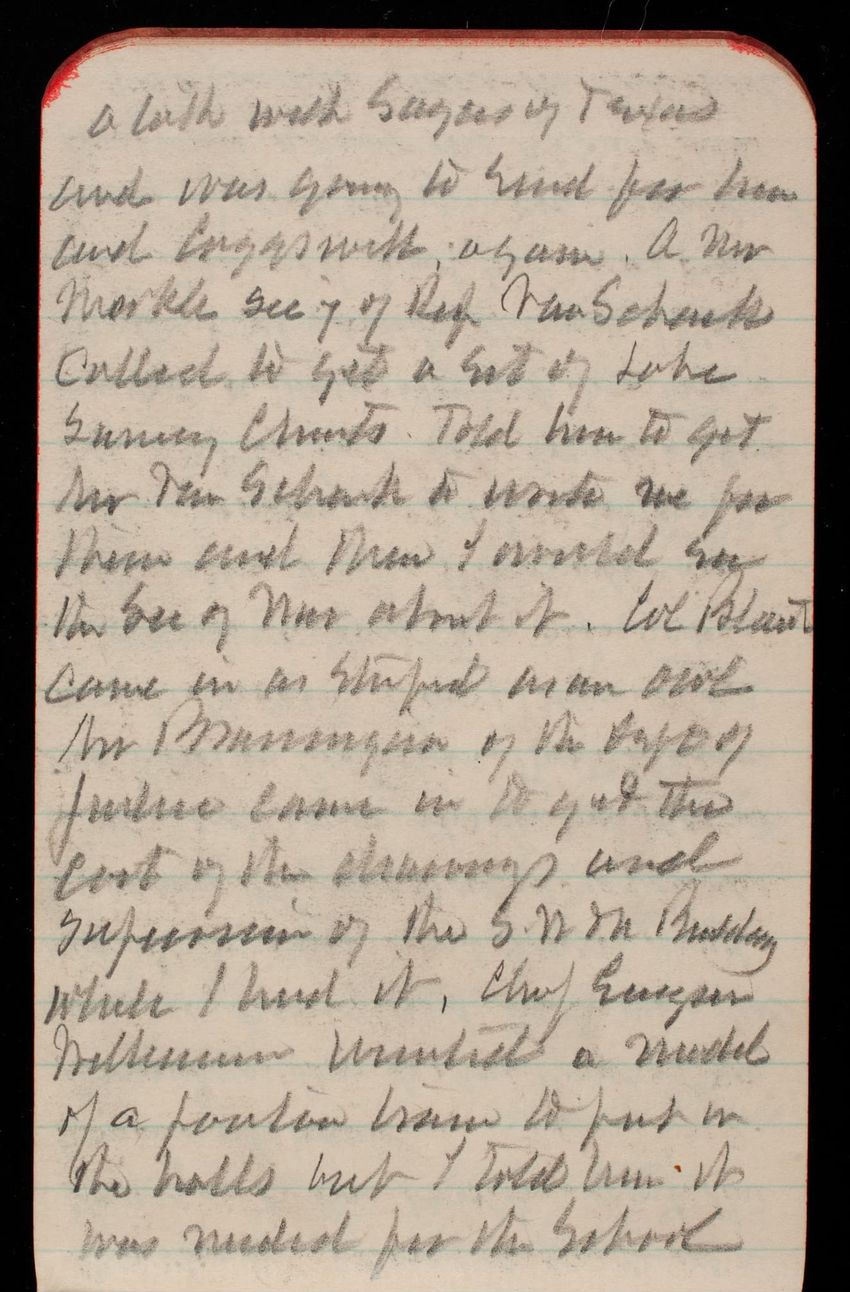 a talk with Sayers of Texas
and was going to send for him
and Coggswell, again. A Mr
Markle Secy of Rep. Van Schaick
Called to get a set of Lake
Survey Charts. Told him to get
Mr Van Schaick to write me for
them and then I would see
the Sec of War about it. Col Blunt
came in as stupid as an owl
Mr of the Dept of
Justice came in to get the
cost of the drawings and
supervision of the S W & N Building
while I had it, Chf Engineer
Williamson wanted a model
of a ponton train to put in
the halls but I told him it
was needed for the School